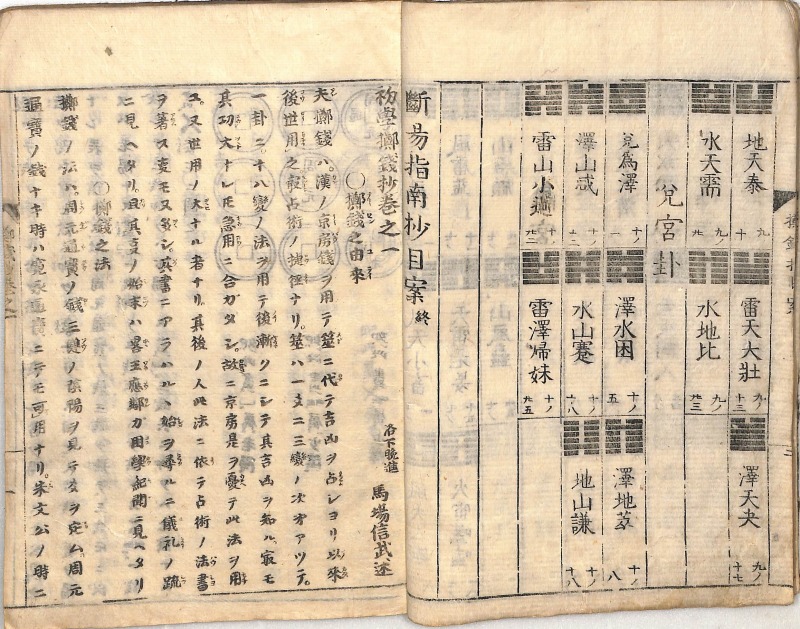 地天泰 九ノ九
雷天大壯 九ノ十三
澤天夬 九ノ十七
水天需
水地比
兌宮卦
兌爲澤 十ノ一
澤水困 十ノ五
澤地萃 十ノ八
澤山咸
水山蹇
地山謙 十ノ十八
雷山小過
雷澤歸妹
斷易指南抄目案 終
初學擲錢抄卷之一
洛下晩進 馬場信武述
○擲錢之由來
夫擲錢ハ漢ノ京房錢ヲ用テ筮ニ代テ吉凶ヲ占シヨリ以來
後世用之㝡占術ノ捷徑ナリ。筮ハ一爻ニ三變ノ次オアツテ。
一卦ニ十八變ノ法ヲ用テ後漸クニシテ其吉凶ヲ知ル。㝡モ
其功大ナレ𪜈急用ニ合ガタシ。故ニ京房是ヲ憂テ此法ヲ用
ユ。又世用ノ大ナル者ナリ。其後ノ人此法ニ依テ占術ノ法書
ヲ著ス㕝モ又多シ。其書ニアラハルヽ始ヲ尋ルニ儀礼ノ疏
ニ見ヘタリ。且其㕝ノ始末ハ畧王應鄰カ困學紀聞ニ見ヘタリ
○擲錢之法
擲錢ノ法ハ。周元通寶ノ錢三文ノ陰陽ヲ見テ爻ヲ定ム。周元
通寶ノ錢ナキ時ハ寛永通寶ニテモ可用ナリ。朱文公ノ時ニ